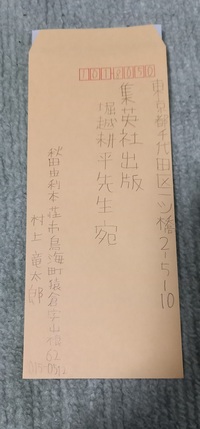 東京都千代田区一ツ橋2-5-10
集英社出版
堀越耕平先生 宛
秋田由利本荘市鳥海町猿倉
村上竜太郎